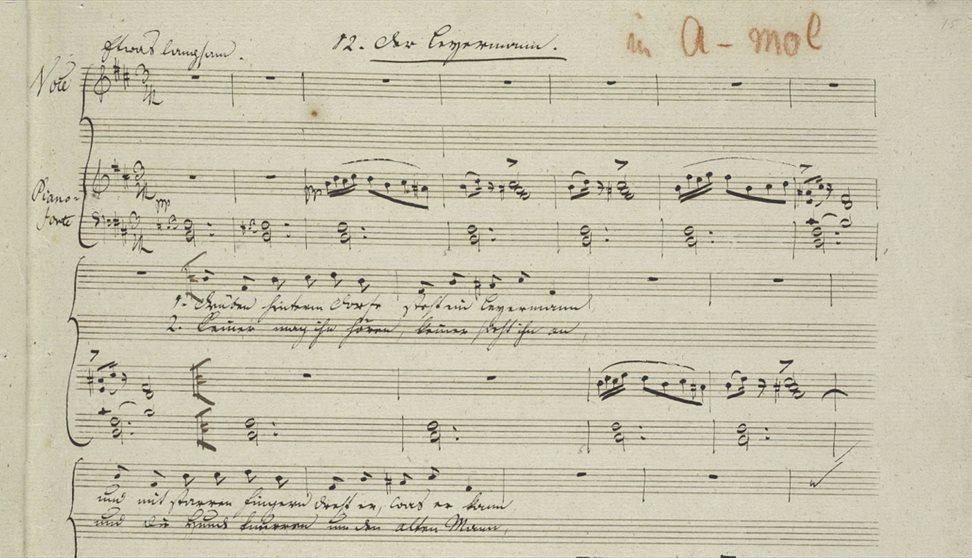 Etwas langsam. 12. Der Leyermann. in A-mol 15
Piano-
forte
pp
pp
1. Drüben hinterm Dorfe steht ein Leyermann
2. Keiner mag ihn hören, keiner sieht ihn an,
und mit starren Fingern dreht er, was er kann
und die Hunde knurren um den alten Mann,